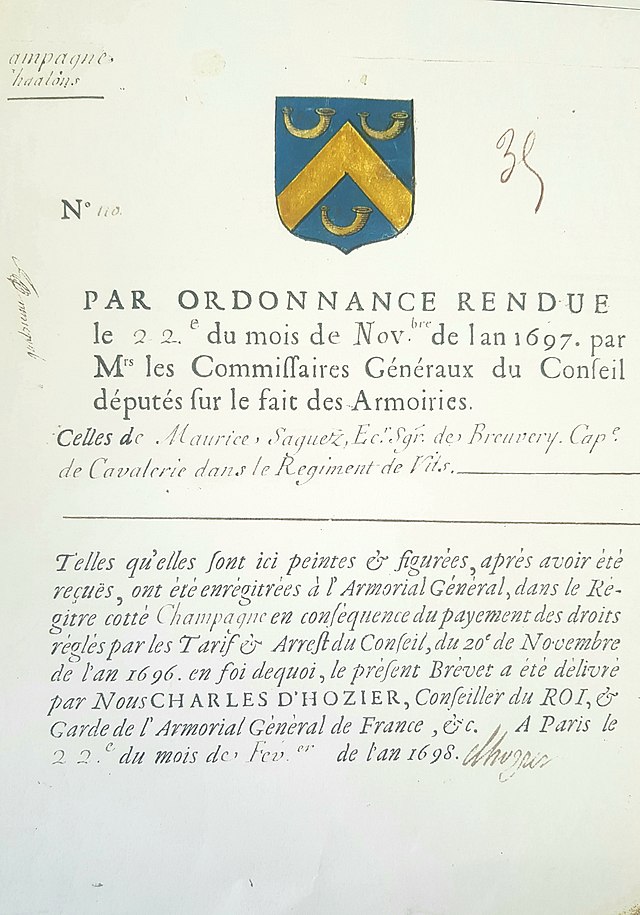 ampagne
haalons
35
N° 110.
PAR ORDONNANCE RENDUE
le 22.e du mois de Nov.bre de lan 1697. par
Mrs les Commiſſaires Généraux du Conſeil
députés ſur le fait des Armoiries.
Celles de Maurice Saguez, Ec.r Sgr. de Breuvery. Cap.e
de Cavalerie dans le Regiment de Vils.
Telles qu'elles ſont ici peintes & figurées, après avoir été
reçuës, ont été enrégitrées à l'Armorial Général, dans le Ré-
gitre cotté Champagne en conséquence du payement des droits
réglés par les Tarif & Arreſt du Conſeil, du 20e de Novembre
de l'an 1696. en foi dequoi, le préſent Brévet a été délivré
par Nous CHARLES D'HOZIER, Conſeiller du ROI, &
Garde de l'Armorial Général de France, &c. A Paris le
22.e du mois de Fév.er de l'an 1698. dhozier